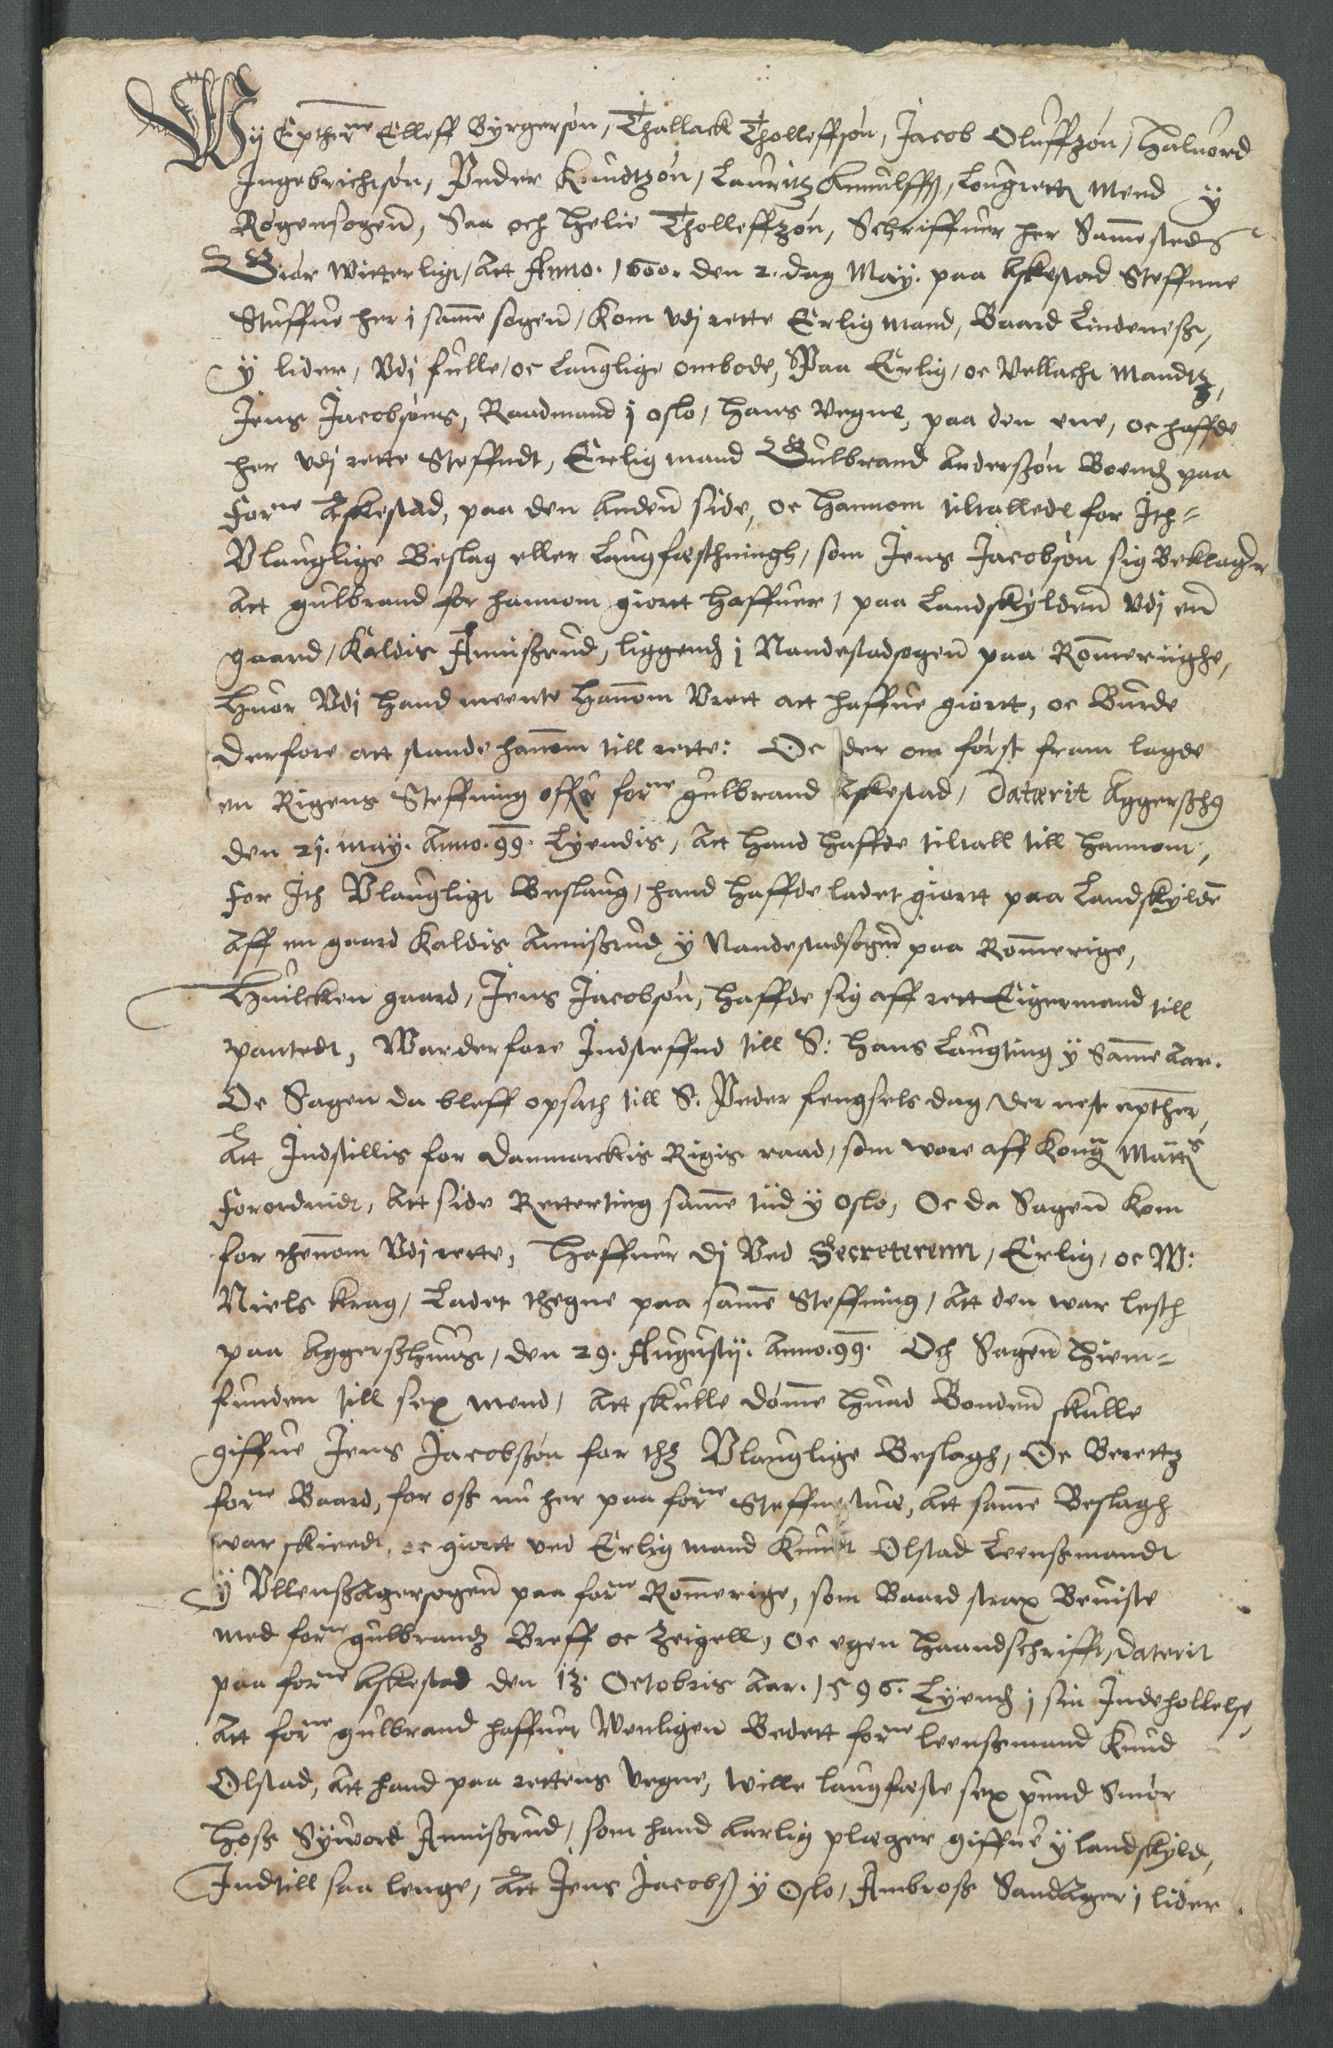 Wij Epthr:ne Elleff Byrgersøn, Thallack Tholleffsøn, Jacob Oluffzøn, Haluord
Ingebrichtsøn, Peder Knudtzøn, Lauritz Arnulffß, Laugrettis Mend y
Røgensogenn, Saa och Helie Tholleffzøn, Schriffuer her Sammesteds
Giør witterligt, Att Anno. 1600. den 2. dag Maij. paa Askestad Steffnne
Stuffue her i samme sogenn, Kom vdj rette Erlig mand, Baard Lindeneß,
y lider, Vdj fulle, oc Lauglige ombode, Paa Erlig, oc Vellacht Mandtz,
Jens Jacobsøns, Raadmand i oslo, Hans Vegne, paa den ene, oc haffde
her vdj rette Steffndt, Erlig mand Gulbrand Anderßøn Boend paa
for:ne Askestad, paa den Anden side, oc Hannom tiltallede for Ith-
Vlauglige Beslag eller Laugfæsthningh, som Jens Jacobsøn sig Beklager
Att gulbrand for hannom giortt haffuer, paa Landskyldenn vdj enn
gaard, Kaldis Annißrud, liggend i Nandestadsogenn paa Rommerighe,
Huor Vdj Hand meente Hannom Vrett att haffue giortt, oc Burde
derfore att stande hannom till rette: Oc der om først fram lagde
en Rigens Steffning offuer for:ne gulbrand Askestad, Daterit Aggerßhuß
den 21. may. Anno. 99. Lyendis, Att Hand haffde tiltall till Hannom,
For Ith Vlaugligt Beslaug, hand haffde ladet giortt paa Landskylden
Aff en gaard Kaldis Annißrud y Nandestadsogenn paa Rommerige,
Huilcken gaard, Jens Jacobsøn, haffde sig aff rett Eigermand till
pantedt, War derfore Indsteffnd till S: Hans Laugting y Samme Aar.
Oc Sagen da bleff opsath till S. Peder fengsels dag der nest epther,
Att Indstillis for Danmarckis Rigis raad, som wore aff Kong: Maytts
Forordnidt, Att side Retterting samme tiid y oslo, Oc da Sagenn Kom
for thennom Vdj rette, Haffuer dj Ved Secreterenn, Erlig, oc W:
Niels Krag, Ladet thegne paa samme Steffning, Att den war lesth
paa Aggerßhuus, den 29. Augustij. Anno. 99. Och Sagenn Hiem-
funden till sex mend, Att skulle dømme Huad Bondenn skulle
giffue Jens Jacobsøn for thz Vlauglige Beslagh, Oc Berettz
for:ne Baard, for oß nu her paa for:ne Steffnestue, Att samme Beslagh
war skiedt, oc giortt ved Erlig mand Knudt Olstad Leenßmandt
y Vllenßagersogenn paa for:ne Rommerige, som Baard strax Beuiste
med for:ne gulbrandz Breff oc Zeigell, Oc egen Haandschrifft, daterit
paa for:ne Askestad den 13. Octobris Aar. 1596. Lyend i sin Indehollelse,
Att for:ne gulbrand haffuer Wenligen Bedett for:ne leenßmand Knud
Olstad, Att hand paa rettens Vegne, wille laugfæste sex pund Smør
Hoß Sywordt Annißrud, som hand Aarlig plæger giffue y landskyld,
Indtill saa lenge, Att Jens Jacobß y Oslo, Ambroß Sandager i lider.